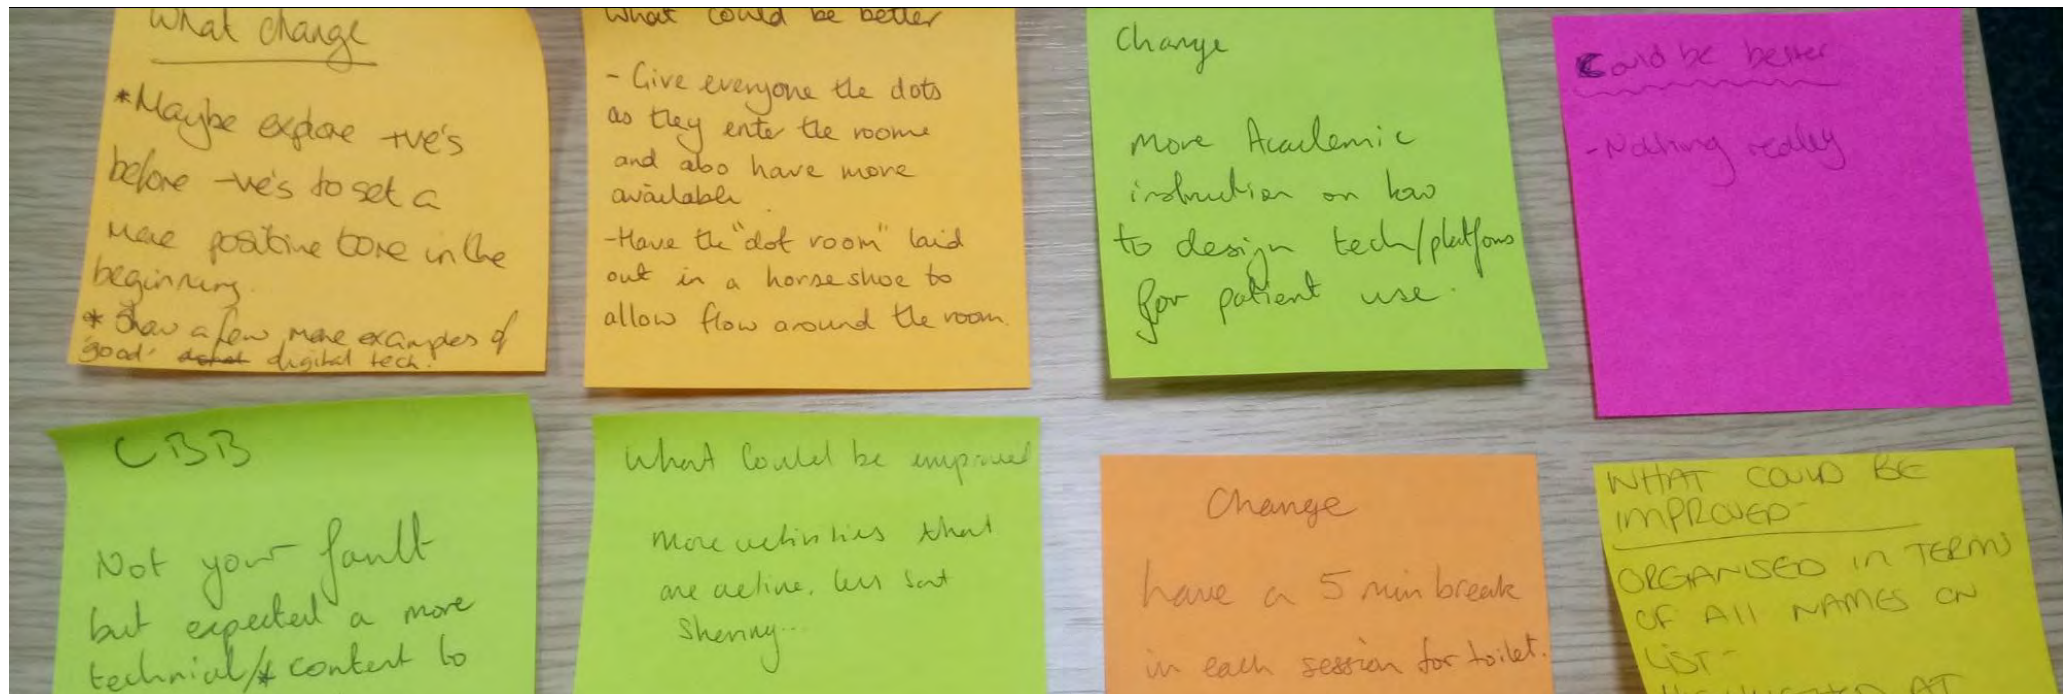 What change
*Maybe explore +ve's
before -ve's to set a
more positive tone in the
beginning.
* Show a few more examples of
'good' digital tech.
What could be better
- Give everyone the dots
as they enter the room
and also have more
available.
-Have the "dot room" laid
out in a horse shoe to
allow flow around the room.
Change
More Academic
instruction on how
to design tech/platforms
for patient use.
Could be better
-Nothing really
CBB
Not your fault
but expected a more
technical/* content to
What could be improved
More activities that
are active. Less sat
Sharing...
Change
have a 5 min break
in each session for toilet.
WHAT COULD BE
IMPROVED-
ORGANISED IN TERMS
OF All NAMES ON
LIST-
AT